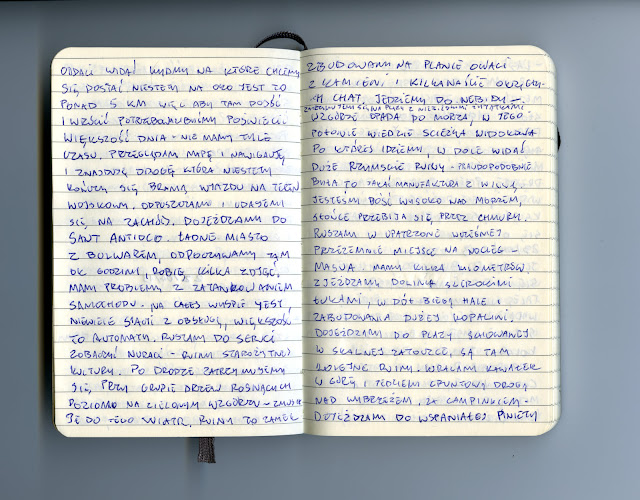 ODDALI WIDAĆ WYDMY NA KTÓRE CHCEMY
SIĘ DOSTAĆ. NIESTETY NA OKO JEST TO
PONAD 5 KM WIĘC ABY TAM DOJŚĆ
I WRÓCIĆ POTRZEBOWALIBYŚMY POŚWIĘCIĆ
WIĘKSZOŚĆ DNIA - NIE MAMY TYLE
CZASU. PRZEGLĄDAM MAPĘ I NAWIGACJĘ
I ZNAJDUJĘ DROGĘ KTÓRA NIESTETY
KOŃCZY SIĘ BRAMĄ WJAZDU NA TEREN
WOJSKOWY. ODPUSZCZAMY I UDAJEMY
SIĘ NA ZACHÓD. DOJEŻDŻAMY DO
SANT ANTIOCO. ŁADNE MIASTO
Z BULWAREM, ODPOCZYWAMY TAM
OK GODZINY, ROBIĘ KILKA ZDJĘĆ,
MAMY PROBLEMY Z ZATANKOWANIEM
SAMOCHODU - NA CAŁEJ WYSPIE JEST
NIEWIELE STACJI Z OBSŁUGĄ, WIĘKSZOŚĆ
TO AUTOMATY. RUSZAMY DO SERUCI
ZOBACZYĆ NURAGI - RUINY STAROŻYTNEJ
KULTURY. PO DRODZE ZATRZYMUJEMY
SIĘ PRZY GRUPIE DRZEW ROSNĄCYCH
POZIOMO NA ZIELONYM WZGÓRZU -
JE DO TEGO WIATR. RUINY TO ZAMEK
ZBUDOWANY NA PLANIE OWALU
Z KAMIENI I KILKANAŚCIE OKRĄGŁY-
CH CHAT. JEDZIEMY DO NEBIDY -
WZGÓRZE OPADA DO MORZA, W JEGO
POŁOWIE WIEDZIE ŚCIEŻKA WIDOKOWA
PO KTÓREJ IDZIEMY, W DOLE WIDAĆ
DUŻE RZYMSKIE RUINY - PRAWDOPODOBNIE
BYŁA TO JAKAŚ MANUFAKTURA Z WILLĄ,
JESTEŚMY DOŚĆ WYSOKO NAD MORZEM,
SŁOŃCE PRZEBIJA SIĘ PRZEZ CHMURY.
RUSZAMY W UPATRZONE WCZEŚNIEJ
PRZEZEMNIE MIEJSCE NA NOCLEG -
MASUA. MAMY KILKA KILOMETRÓW
ZJEŻDŻAMY DOLINĄ SZEROKIMI
ŁUKAMI, W DÓŁ BIEGĄ HALE I
ZABUDOWANIA DUŻEJ KOPALNI.
DOJEŻDŻAMY DO PLAŻY SCHOWANEJ
W SKALNEJ ZATOCZCE, SĄ TAM
RUINY. WRACAMY KAWAŁEK
W GÓRĘ I JEDZIEMY GRUNTOWĄ DROGĄ
NAD WYBRZEŻEM, ZA CAMPINGIEM -
DOJEŻDŻAMY DO WSPANIAŁEJ PINIETY